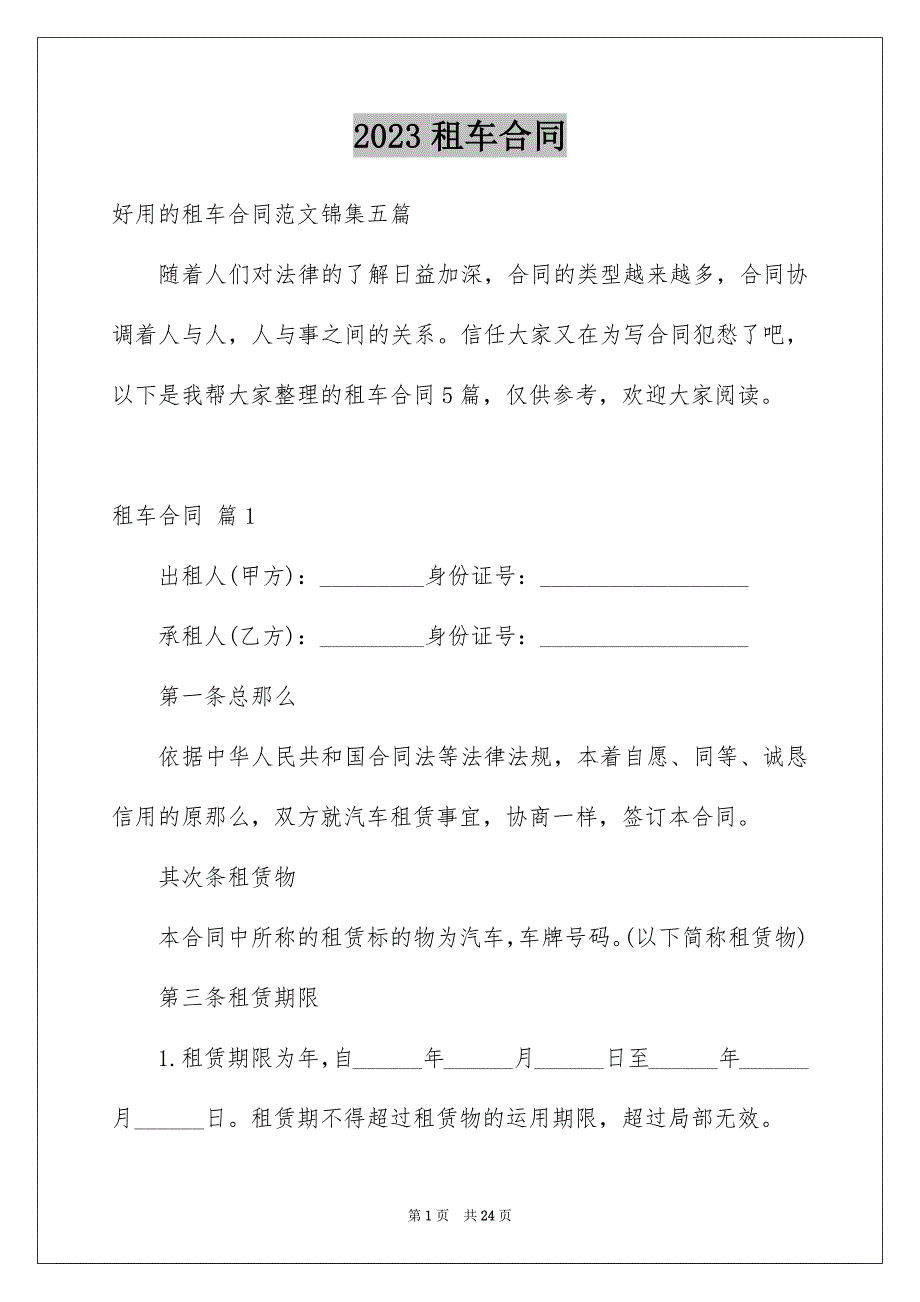 2023租车合同
好用的租车合同范文锦集五篇
随着人们对法律的了解日益加深，合同的类型越来越多，合同协
调着人与人，人与事之间的关系。信任大家又在为写合同犯愁了吧，
以下是我帮大家整理的租车合同5篇，仅供参考，欢迎大家阅读。
租车合同 篇1
出租人(甲方)：_________身份证号：__________________
承租人(乙方)：_________身份证号：__________________
第一条总那么
依据中华人民共和国合同法等法律法规，本着自愿、同等、诚恳
信用的原那么，双方就汽车租赁事宜，协商一样，签订本合同。
其次条租赁物
本合同中所称的租赁标的物为汽车，车牌号码。(以下简称租赁物)
第三条租赁期限
1.租赁期限为年，自______年______月______日至______年______
月______日。租赁期不得超过租赁物的运用期限，超过局部无效。
第1页 共24页